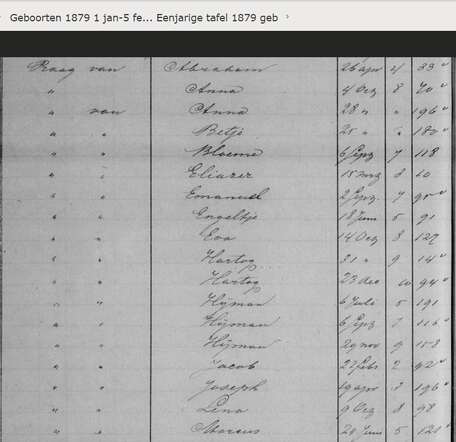 Geboorten 1879 1 jan-5 fe... Eenjarige tafel 1879 geb ›
Praag van Abraham 26 apr 4 33 v
" Anna 4 Oct 8 70 v
" van Anna 28 " " 196 v
" " Betje 25 " " 180 v
" " Bloeme 7 118
" " Eliazer 15 3 60
" " Emanuel 7
" " Engeltje 18 Juni 5 91
" " Eva 14 Oct 8 127
" " Hartog 31 " 9 14 v
" " Hartog 23 dec 10 94 v
" " Hijman 6 Juli 5 191
" " Hijman 6 7 116 v
" " Hijman 29 nov 9 158
" " Jacob 27 Feb 2 92 v
" " Joseph 19 apr 3 196 v
" " Lena 9 Oct 8 98
" " Marcus 20 Juni 5 120 v